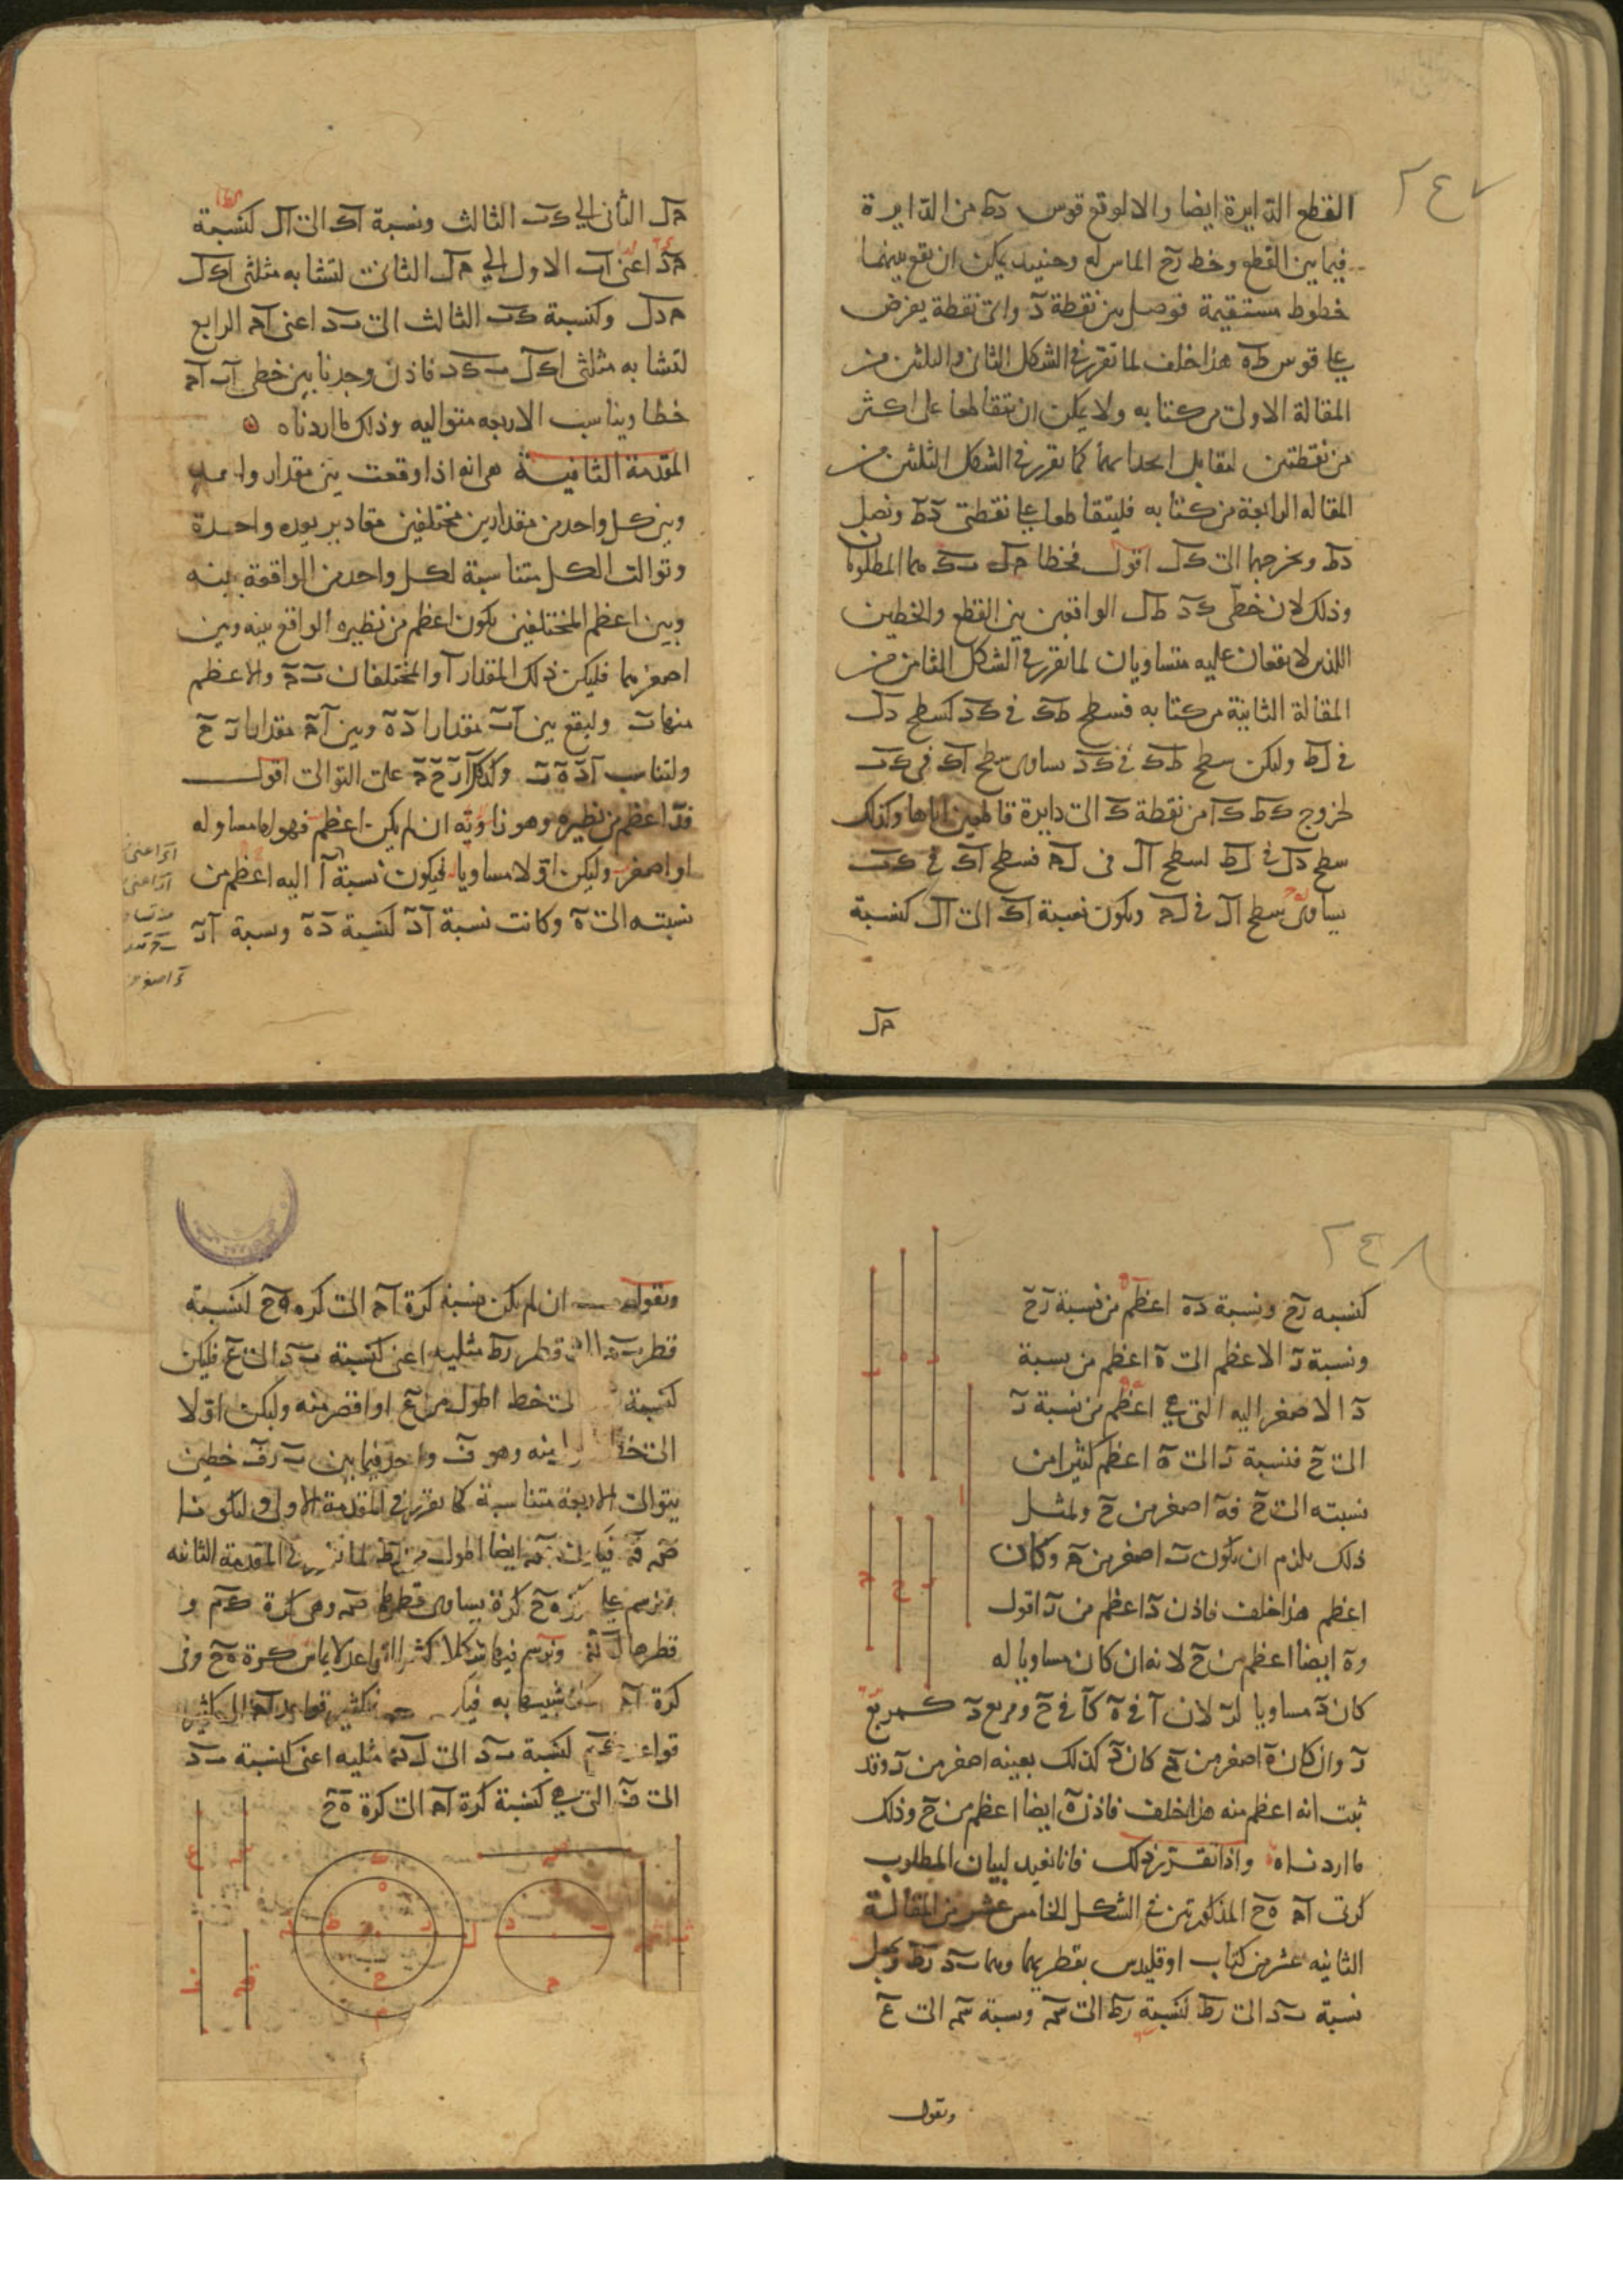 ٢٤٧
القطع الدايرة ايضا والا لوقع قوس دط من الدايرة
فيما بين القطع وخط رح الماس له وحينيذ يمكن ان يقع بينهما
خطوط مستقيمة فوصل بين نقطة د واى نقطة يفرض
على قوس طه هذا خلف لما تقرر فى الشكل الثانى والثلثين من
المقالة الاولى من كتابه ولا يمكن ان يتقاطعا على اكثر
من نقطتين لتقابل احدابهما كما تقرر فى الشكل الثلثين من
المقاله الرابعة من كتابه فليتقاطعا على نقطتى د ط ونصل
دط ونخرجها الى ك ل اقول فخطا حل ب ك هما المطلوبان
وذلك لان خطى ك د ط ل الواقعين بين القطع والخطين
اللذين لا يقعان عليه متساويان لما تقرر فى الشكل الثامن من
المقالة الثانية من كتابه فسطح طك فى ك د كسطح دل
فى لط وليكن سطح طك فى ك د يساوى سطح اك فى ك ب
لخروج كط كا من نقطة ك الى دايرة قاطعين اياها وكذلك
سطح دل فى لط لسطح ال فى لح فسطح اك فى ك ب
يساوى سطح ال فى لح ويكون نسبة اك الى ال كنسبة
حل
حل الثانى الى ك ب الثالث ونسبة اك الى ال كنسبة
حد اعنى اب الاول الى حل الثانى لتشابه مثلثى اك ل
ح د ل وكنسبة ك ب الثالث الى ب د اعنى اح الرابع
لتشابه مثلثى اك ل ب ك د فاذن وجدنا بين خطى اب اح
خطا ويناسب الاربعه متواليه وذلك ما اردناه
المقدمة الثانية هى انه اذا وقعت بين مقدار واحد
وبين كل واحد من مقدارين مختلفين مقادير بعده واحدة
وتوالت الكل متناسبة لكل واحد من الواقعة بينه
وبين اعظم المختلفين يكون اعظم من نظيره الواقع بينه وبين
اصغرهما فليكن ذلك المقدار ا والمختلفان ب ح والاعظم
منهما ب وليقع بين ا ب مقدارا د ه وبين ا ح مقدارا ر ح
وليتناسب ا د ه ب وكذلك ا ر ح ح على التوالى اقول
فد اعظم من نظيره وهو ر لانه ان لم يكن اعظم فهو اما مساو له
او اصغر وليكن اولا مساويا فيكون نسبة ا اليه اعظم من
نسبته الى ه وكانت نسبة ا د كنسبة د ه ونسبة ا ر
٢٤٨
كنسبه رح ونسبة ده اعظم من نسبة رح
ونسبة د الاعظم الى ه اعظم من نسبة
د الاصغر اليه التى هى اعظم من نسبة ر
الى ح فنسبة د الى ه اعظم كثيرا من
نسبته الى ح فه اصغر من ح ولمثل
ذلك يلزم ان يكون ب اصغر من ح وكان
اعظم هذا خلف فاذن د اعظم من ر اقول
وه ايضا اعظم من ح لانه ان كان مساويا له
كان د مساويا لر لان ا فى ه كا فى ح ومربع د كمربع
ر وان كان ه اصغر من ح كان د كذلك بعينه اصغر من ر وقد
ثبت انه اعظم منه هذا خلف فاذن ه ايضا اعظم من ح وذلك
ما اردناه واذا تقرر ذلك فانا نعيد لبيان المطلوب
كرتى اح ه ح المذكورتين فى الشكل الخامس عشر من المقالة
الثانيه عشر من كتاب اوقليدس بقطريهما وهما ب د رط ونجعل
نسبة ب د الى رط كنسبة رط الى سه ونسبة سه الى ع
ونقول
ونقول ان لم يكن نسبة كرة اح الى كرة ه ح كنسبة
قطر ب د الى قطر رط مثلثه اعنى كنسبة ب د الى ع فليكن
كنسبة الى خط اطول من ع او اقصر منه وليكن اولا
الى خط منه وهو ف واحد فيما بين ب د ف خطين
يتوالى الاربعة متناسبة كما تقرر فى المقدمة الاولى وليكونا
ايضا اطول من رط لما تقرر فى المقدمة الثانيه
ونرسم على مركز ه ح كرة يساوى قطرها صه وهى كرة ك م و
قطرها ل ن ونرسم فيها شكلا كثير القواعد لا يماس كرة ه ح وفى
كرة اح شبيها به
قواعد كنسبة ب د الى ل ن مثلثه اعنى كنسبة ب د
الى ف التى هى كنسبة كرة اح الى كرة ه ح